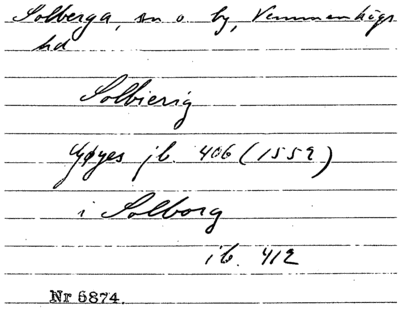 Solberga, sn o by, Vemmenhögs
hd
Solbierig
Gøyes jb. 406 (1552)
i Solborg
ib. 412
Nr 5874.